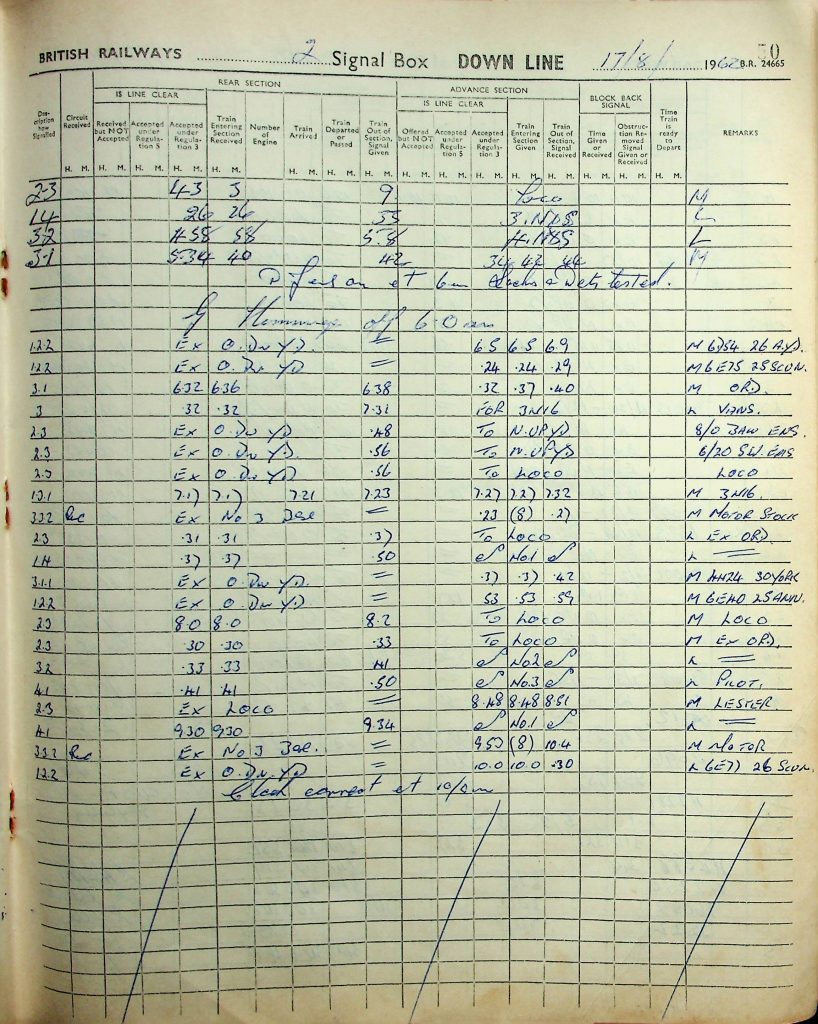 BRITISH RAILWAYS 2 Signal Box DOWN LINE 17/8/ 1962 50
B.R. 24665
REAR SECTION ADVANCE SECTION
IS LINE CLEAR IS LINE CLEAR BLOCK BACK SIGNAL
Description how Signalled Circuit Received Received but NOT Accepted Accepted under Regulation 5 Accepted under Regulation 3 Train Entering Section Received Number of Engine Train Arrived Train Departed or Passed Train Out of Section, Signal Given Offered but NOT Accepted Accepted under Regulation 5 Accepted under Regulation 3 Train Entering Section Given Train Out of Section, Signal Received Time Given or Received Obstruction Removed Signal Given or Received Time Train is ready to Depart REMARKS
H. M. H. M. H. M. H. M. H. M. H. M. H. M. H. M. H. M. H. M. H. M. H. M. H. M. H. M. H. M. H. M.
2-3 43 3 9 Loco M
1.4 26 26 35 3. L
3-2 4.58 58 5.8 4. L
3-1 5.34 40 42 34 42 44 M
on at 6am & tested.
off 6.0am
1.2.2 Ex O. Dn YD. = 6.5 6.5 6.9 M 26 A.YD.
1.2.2 Ex O. Dn YD = .24 .24 .29 M 6E75 25 SCUN.
3.1 6.32 6.36 6.38 .32 .37 .40 M ORD.
3 .32 .32 7.31 FOR 3N16 L VANS.
2.3 Ex O. Dn YD .48 To N.UP YD 8/0 ENG.
2.3 Ex O. Dn YD. .56 To N.UP YD 6/20 ENG
2.3 Ex O. Dn YD .56 To LOCO LOCO
1.3.1 7.17 7.17 7.21 7.23 7.27 7.27 7.32 M 3N16.
3.3.2 Rec Ex No 3 = .23 (8) .27 M MOTOR STOCK
2.3 .31 .31 .37 To LOCO L Ex ORD.
1.4 .37 .37 .50 No.1 L =
3.1.1 Ex O. Dn YD. = .37 .37 .42 M 30 YORK
1.2.2 Ex O. Dn YD = .53 .53 .59 M 25
2.3 8.0 8.0 8.2 To LOCO M LOCO
2.3 .30 .30 .33 To LOCO M Ex ORD.
3.2 .33 .33 .41 No2 L =
4.1 .41 .41 .50 No.3 L PILOT.
2.3 Ex LOCO = 8.48 8.48 8.51 M LESTER
4.1 9.30 9.30 9.34 No.1 L =
3.3.2 Rec Ex No 3 = 9.53 (8) 10.4 M MOTOR
1.2.2 Ex O. Dn. YD = 10.0 10.0 .30 L 6E77 26 SCUN.
Clock correct at 10/0am